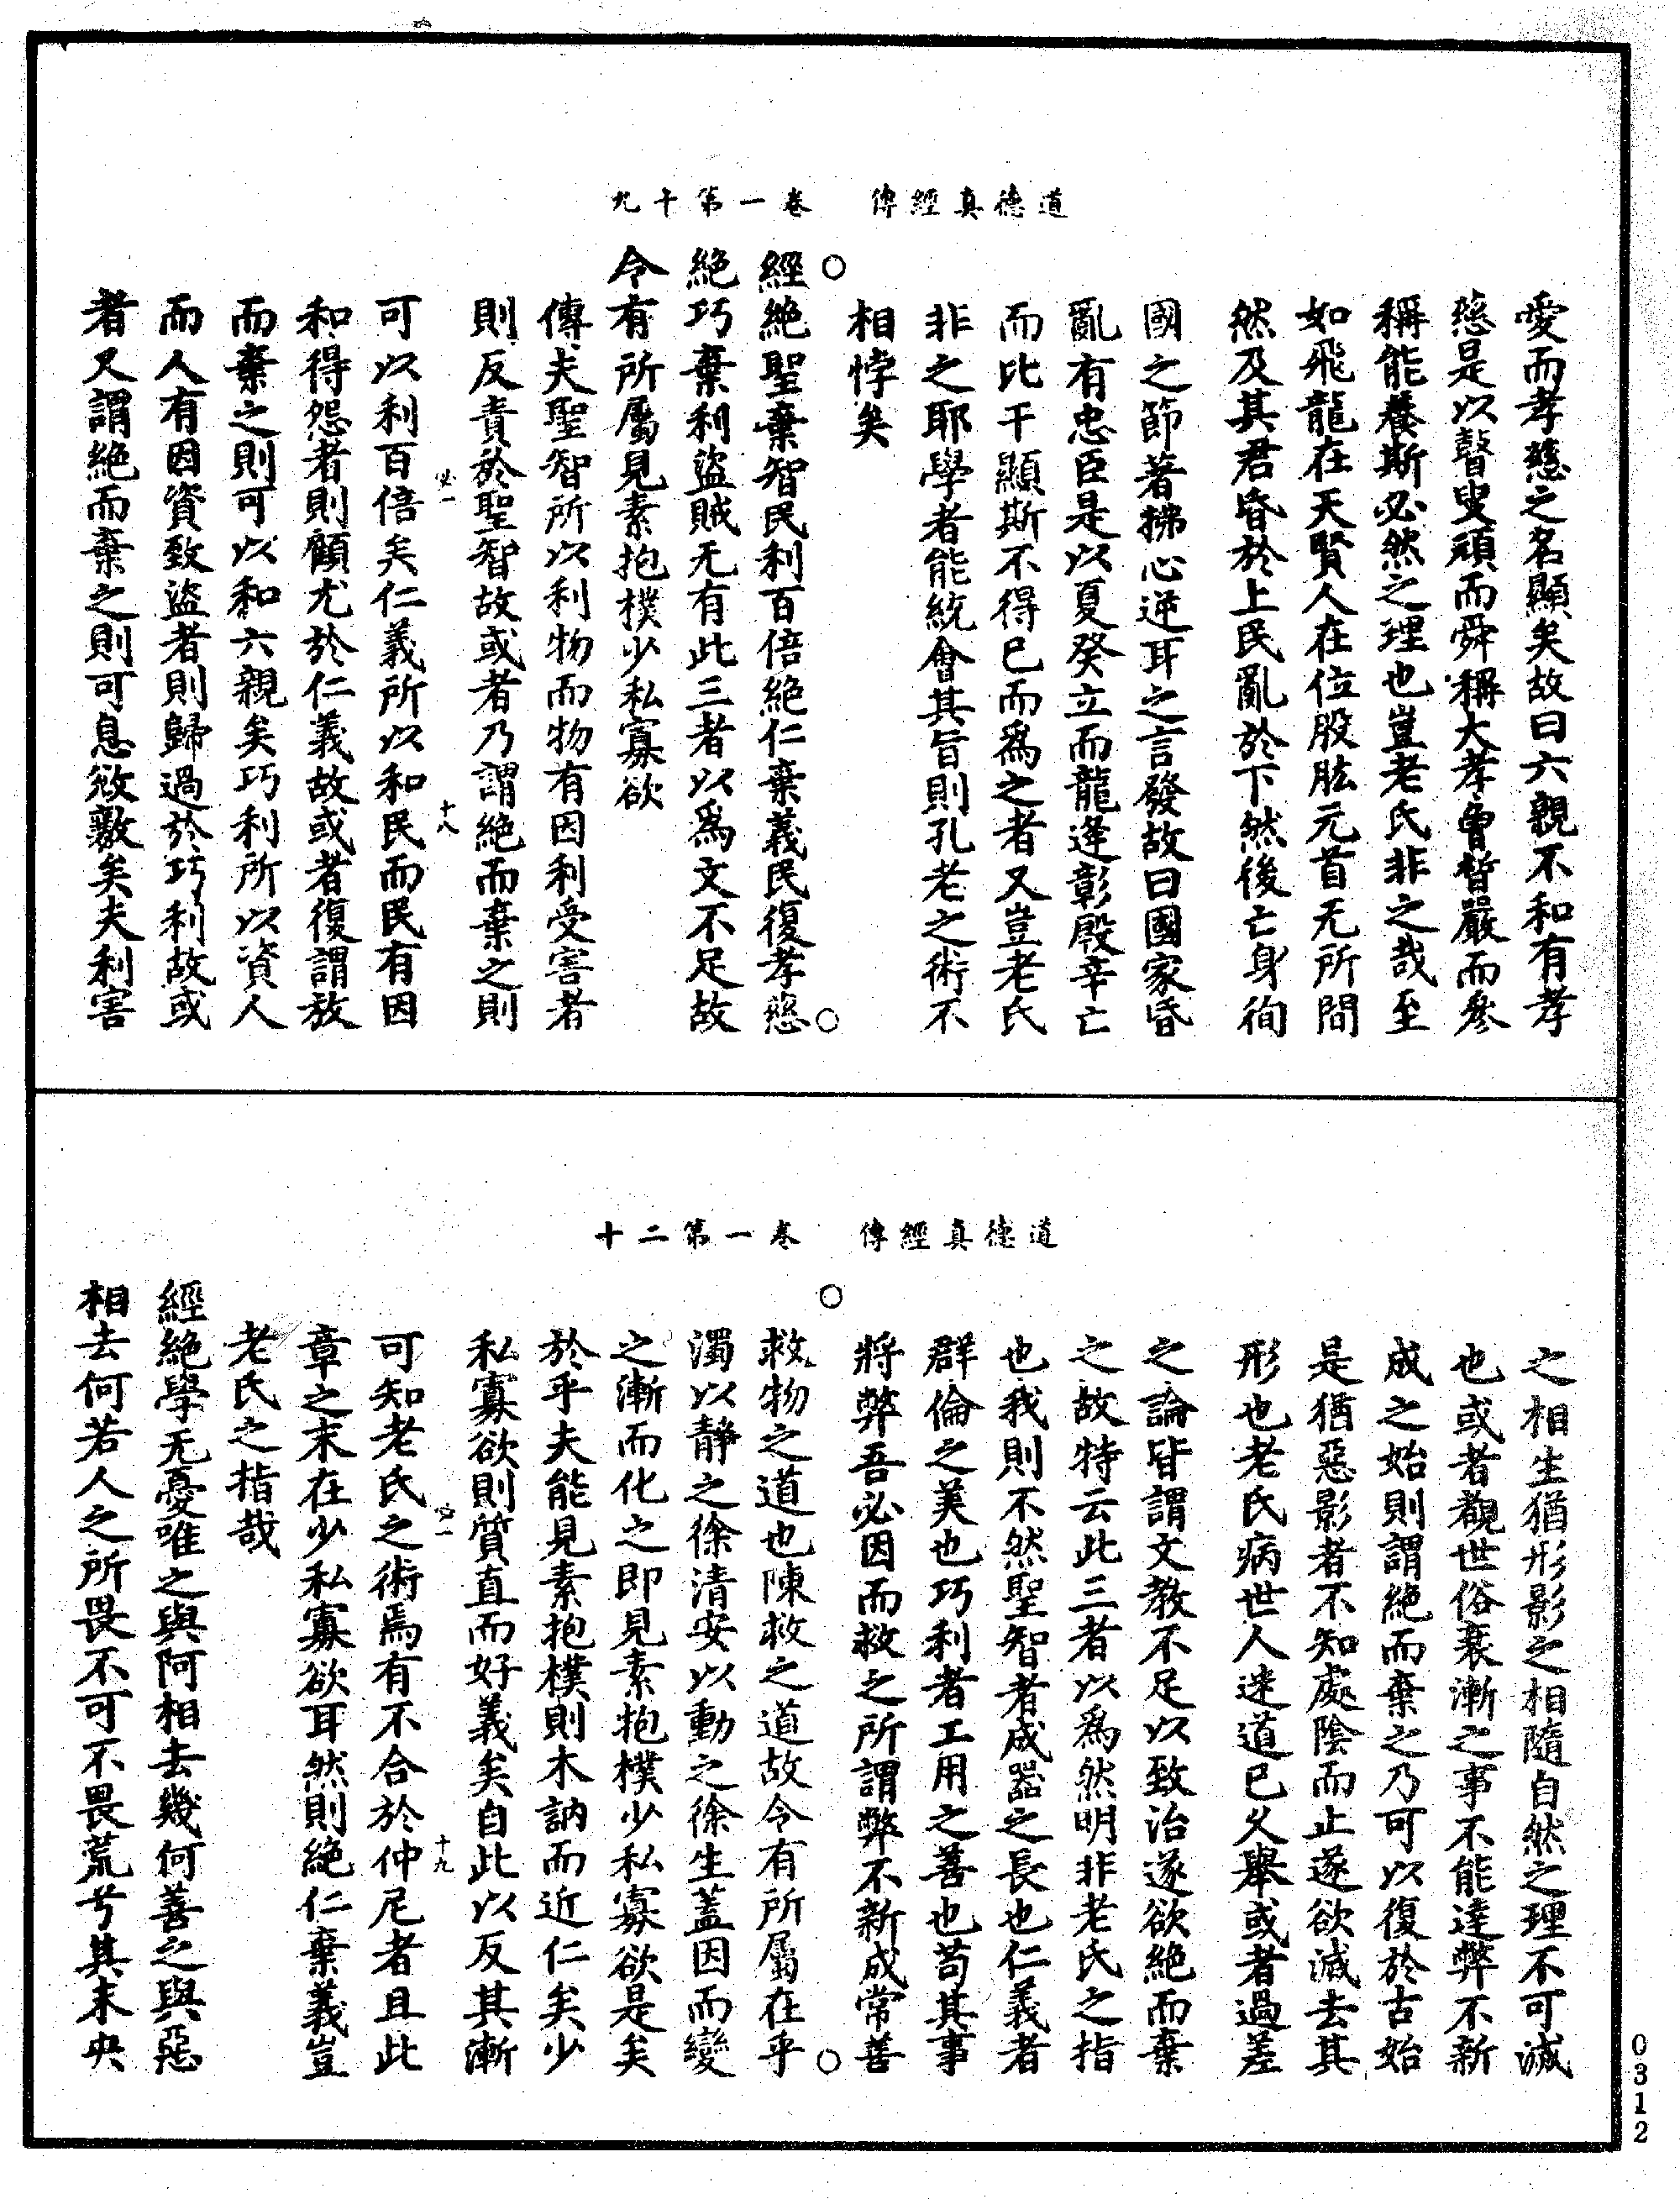 道德真經傳　卷一第十九
愛而孝慈之名顯矣故曰六親不和有孝
慈是以瞽叟頑而舜稱大孝曾晳嚴而參
稱能養斯必然之理也豈老氏非之哉至
如飛龍在天賢人在位股肱元首无所間
然及其君昏於上民亂於下然後亡身徇
國之節著拂心逆耳之言發故曰國家昏
亂有忠臣是以夏癸立而龍逢彰殷辛亡
而比干顯斯不得已而為之者又豈老氏
非之耶學者能統會其旨則孔老之術不
相悖矣
經絶聖棄智民利百倍絶仁棄義民復孝慈
絶巧棄利盜賊无有此三者以為文不足故
令有所屬見素抱樸少私寡欲
傳夫聖智所以利物而物有因利受害者
則反責於聖智故或者乃謂絶而棄之則
可以利百倍矣仁義所以和民而民有因
必一　十八
和得怨者則顧尤於仁義故或者復謂放
而棄之則可以和六親矣巧利所以資人
而人有因資致盜者則歸過於巧利故或
者又謂絶而棄之則可息攽斁矣夫利害
道德真經傳　卷一第二十
之相生猶形影之相隨自然之理不可滅
也或者覩世俗衰漸之事不能達弊不新
成之始則謂絶而棄之乃可以復於古始
是猶惡影者不知處陰而止遂欲滅去其
形也老氏病世人迷道已久舉或者過差
之論皆謂文教不足以致治遂欲絶而棄
之故特云此三者以為然明非老氏之指
也我則不然聖智者成器之長也仁義者
群倫之美也巧利者工用之善也苟其事
將弊吾必因而救之所謂弊不新成常善
救物之道也陳救之道故令有所屬在乎
濁以静之徐清安以動之徐生蓋因而變
之漸而化之即見素抱樸少私寡欲是矣
於乎夫能見素抱樸則木訥而近仁矣少
私寡欲則質直而好義矣自此以反其漸
可知老氏之術焉有不合於仲尼者且此
必一　十九
章之末在少私寡欲耳然則絶仁棄義豈
老氏之指哉
經絶學无憂唯之與阿相去幾何善之與惡
相去何若人之所畏不可不畏荒兮其未央
0312